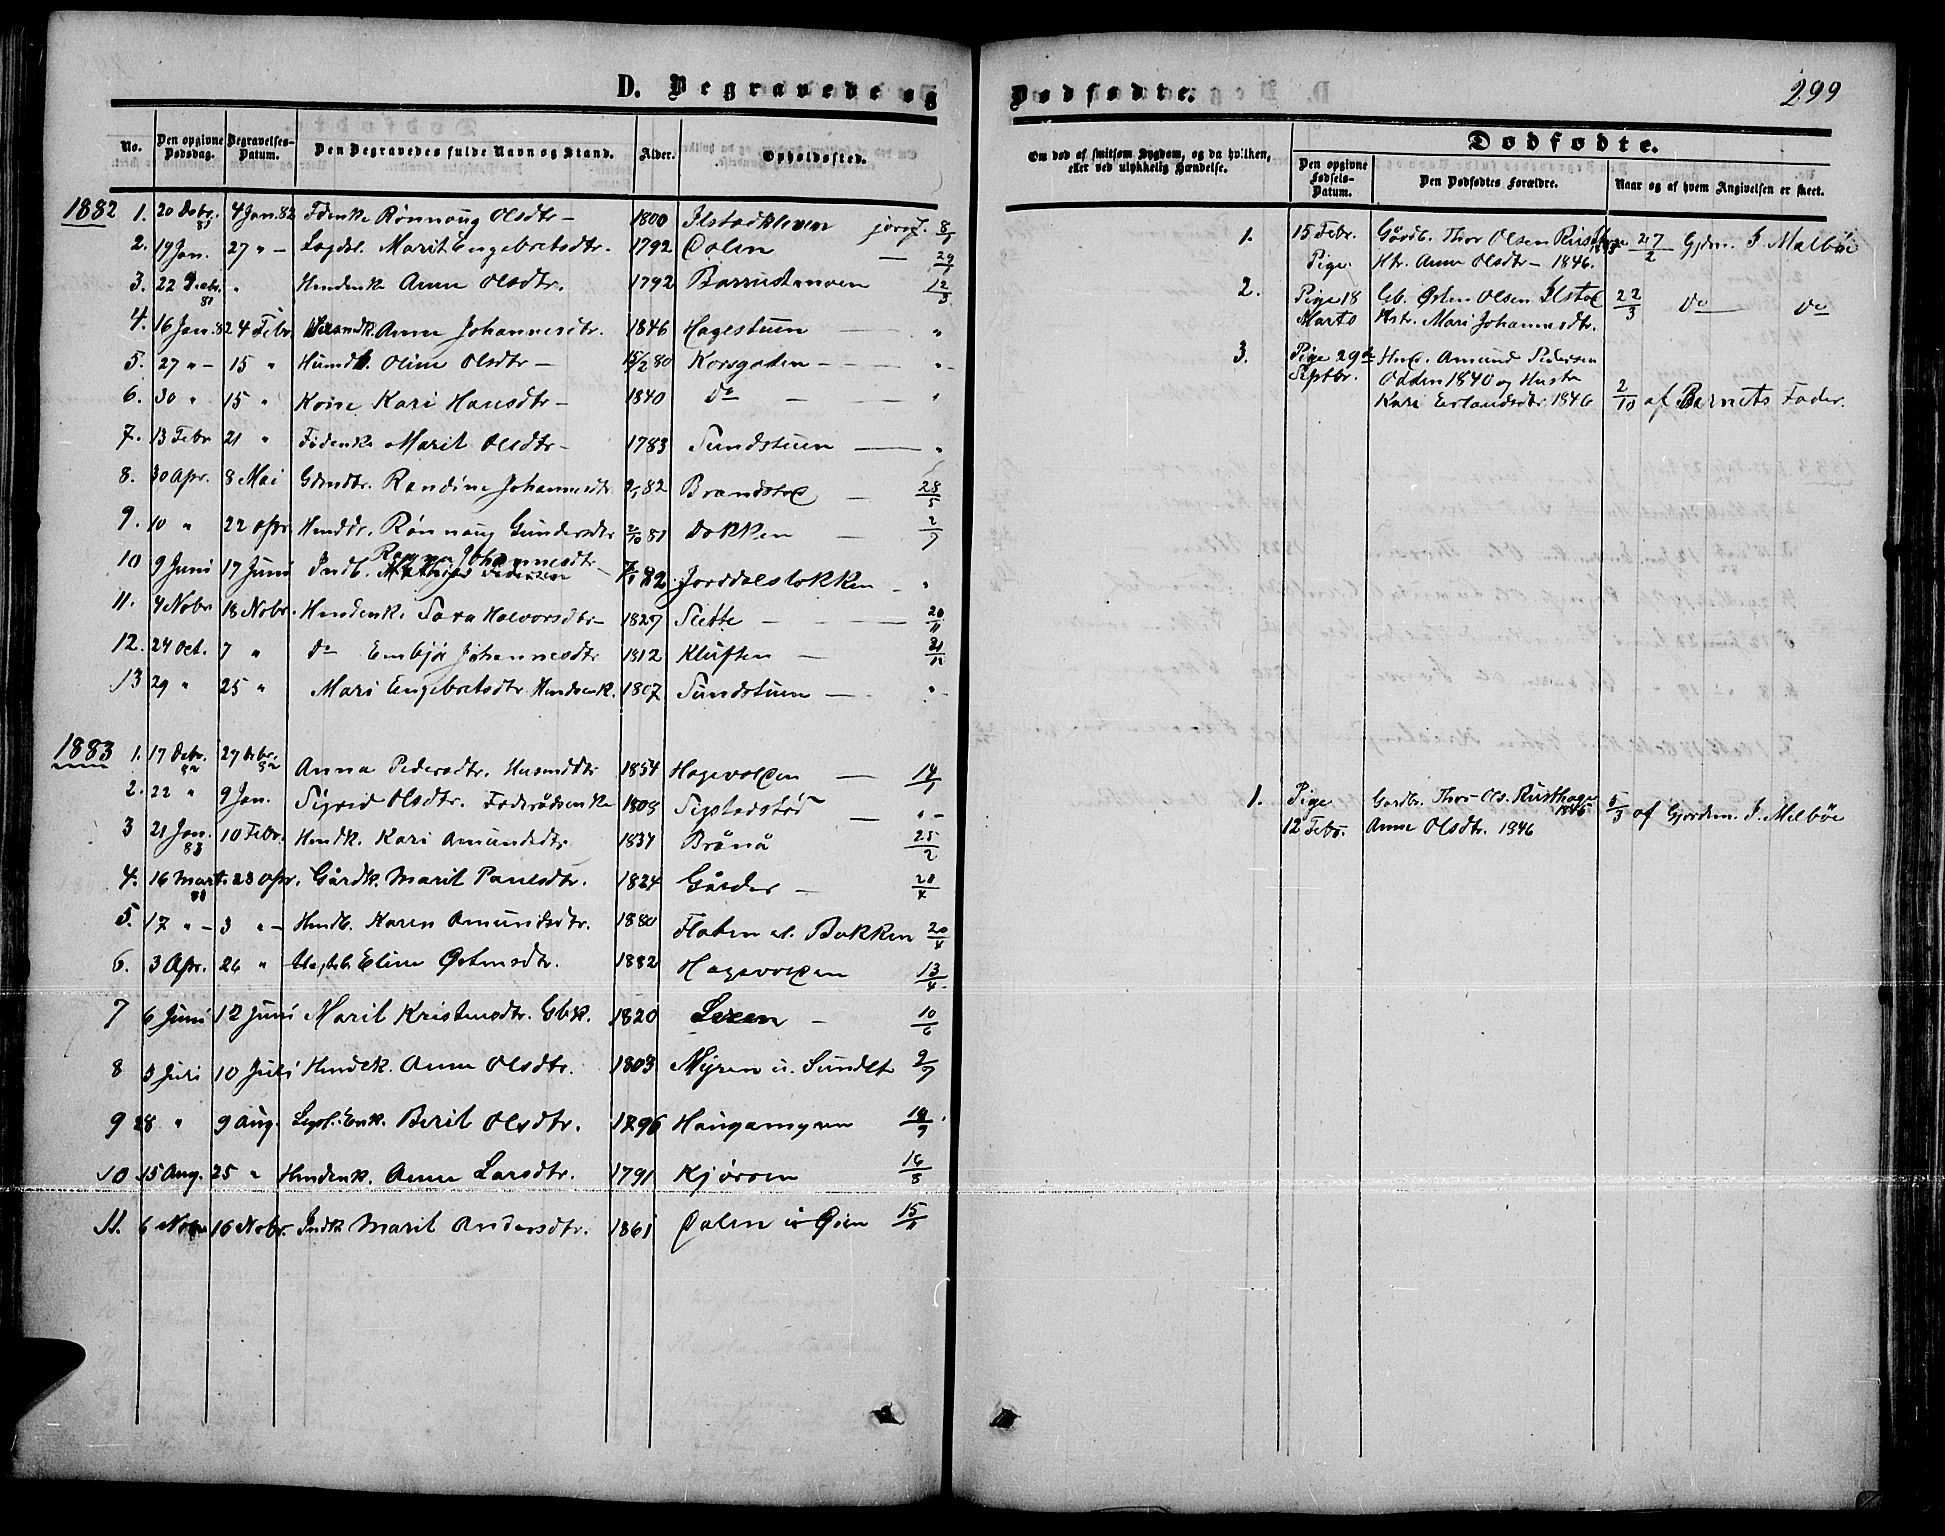 D. Begravede og
No. Den opgivne Dødsdag. Begravelses-Datum. Den Begravedes fulde Navn og Stand. Alder. Opholdssted.
1882 1. 20 Debr. 81 4 Jan. 82 Fdenke Rønnaug Olsdtr - 1800 Ilstadkleven jordf. 8/1
2. 19 Jan. 27 " - Lægdsl. Marit Engebretsdtr. 1792 Dalen — 29/1
3. 22 Decbr. 81 " Hmdenke Anne Olsdtr. 1792 12/3
4. 16 Jan. 82 4 Febr. Anne Johannesdtr. 1846 Hagestuen — "
5. 27 " - 15 " Oline Olsdtr - 15/2 80 Korsgaden - "
6. 30 " 15 " Kone Kari Hansdtr - 1840 do — "
7. 13 Febr 21 " Fdenke Marit Olsdtr - 1783 Sundstuen — "
8. 30 Apr. 8 Mai Randine Johannesdtr 82 Brandstad — 28/5
9. 10 " 22 Apr. Hmddr. Rønnaug Gundersdtr 2/10 81 Dokken — 2/7
10 9 Juni 17 Juni Indb. Johannesdtr 82. Jorddalsløkken - "
11. 4 Nobr 18 Nobr. Hmdenke Sara Halvorsdtr - 1827 Slette — 20/11
12. 24 Oct. 7 " do Embjør Johannesdtr 1812 Kluften — 21/11
13 29 " 25 " Mari Engebretsdtr Hmdenk. 1807 Sundstuen — "
1883 1. 17 Debr. 82 27 Debr. 82 Anna Pedersdtr. Husmddtr 1854 Hagevolden — 14/1
2. 22 " 9 Jan. Sigrid Olsdtr. Føderådsenke 1808 " -
3 21 Jan. 83 10 Febr. Hmdk. Kari Amundsdtr. 1837 Brånå 25/2
4. 16 Mart. 83 23 Apr. Gårdk. Marit Paulsdtr. 1824 Gårder — 28/4
5. 17 " - 3 " - Hmdb. Karen Amundsdtr. 1880 Flaten al. Bakken 20/4
6. 3 Apr. 26 " Eline Østensdtr. 1882 Hagevolden 13/4
7 6 Juni 12 Juni Marit Kristensdtr. Gbk. 1820 Loen — 10/6
8 3 Juli 10 Juli Hmdek. Anne Olsdtr. 1803 Myren u. Sundet 9/7
9 28 " 9 Aug. Lægsl. Enk. Berit Olsdtr. 1796 Haugamyren 19/9
10 15 Aug. 25 " Hmdenk. Anne Larsdtr. 1791 Kjøroen 16/8
11. 6 Nobr 16 Nobr. Indk Marit Andersdtr. 1861 Dalen u Øien 15/11
Dødfødte.
299
Om død af smitsom Sygdom, og da hvilken, eller ved ulykkelig Hændelse.
Dødfødte.
Den opgivne Fødsels-Datum. Den Dødfødtes Forældre. Naar og af hvem Angivelsen er skeet.
1. 15 Febr. Gårdb. Thor Olsen Rusthage 27/2 Gjdm. J. Melbøe
Pige. Htr. Anne Olsdtr - 1846.
2. Pige 18 Gb. Østen Olsen Ilstad 22/3 do — do
Marts Hstr. Mari Johannesdtr.
3. Pige 29de Hmd. Amund Pedersen
Septbr. Odden 1840 og Hustr 2/10 af Barnets Fader.
Kari Erlandsdtr. 1846
1. Pige Gardbr. Thor Ols. Rusthage 5/3 af Gjordem. J. Melbøe
12 Febr. Anne Olsdtr. 1846